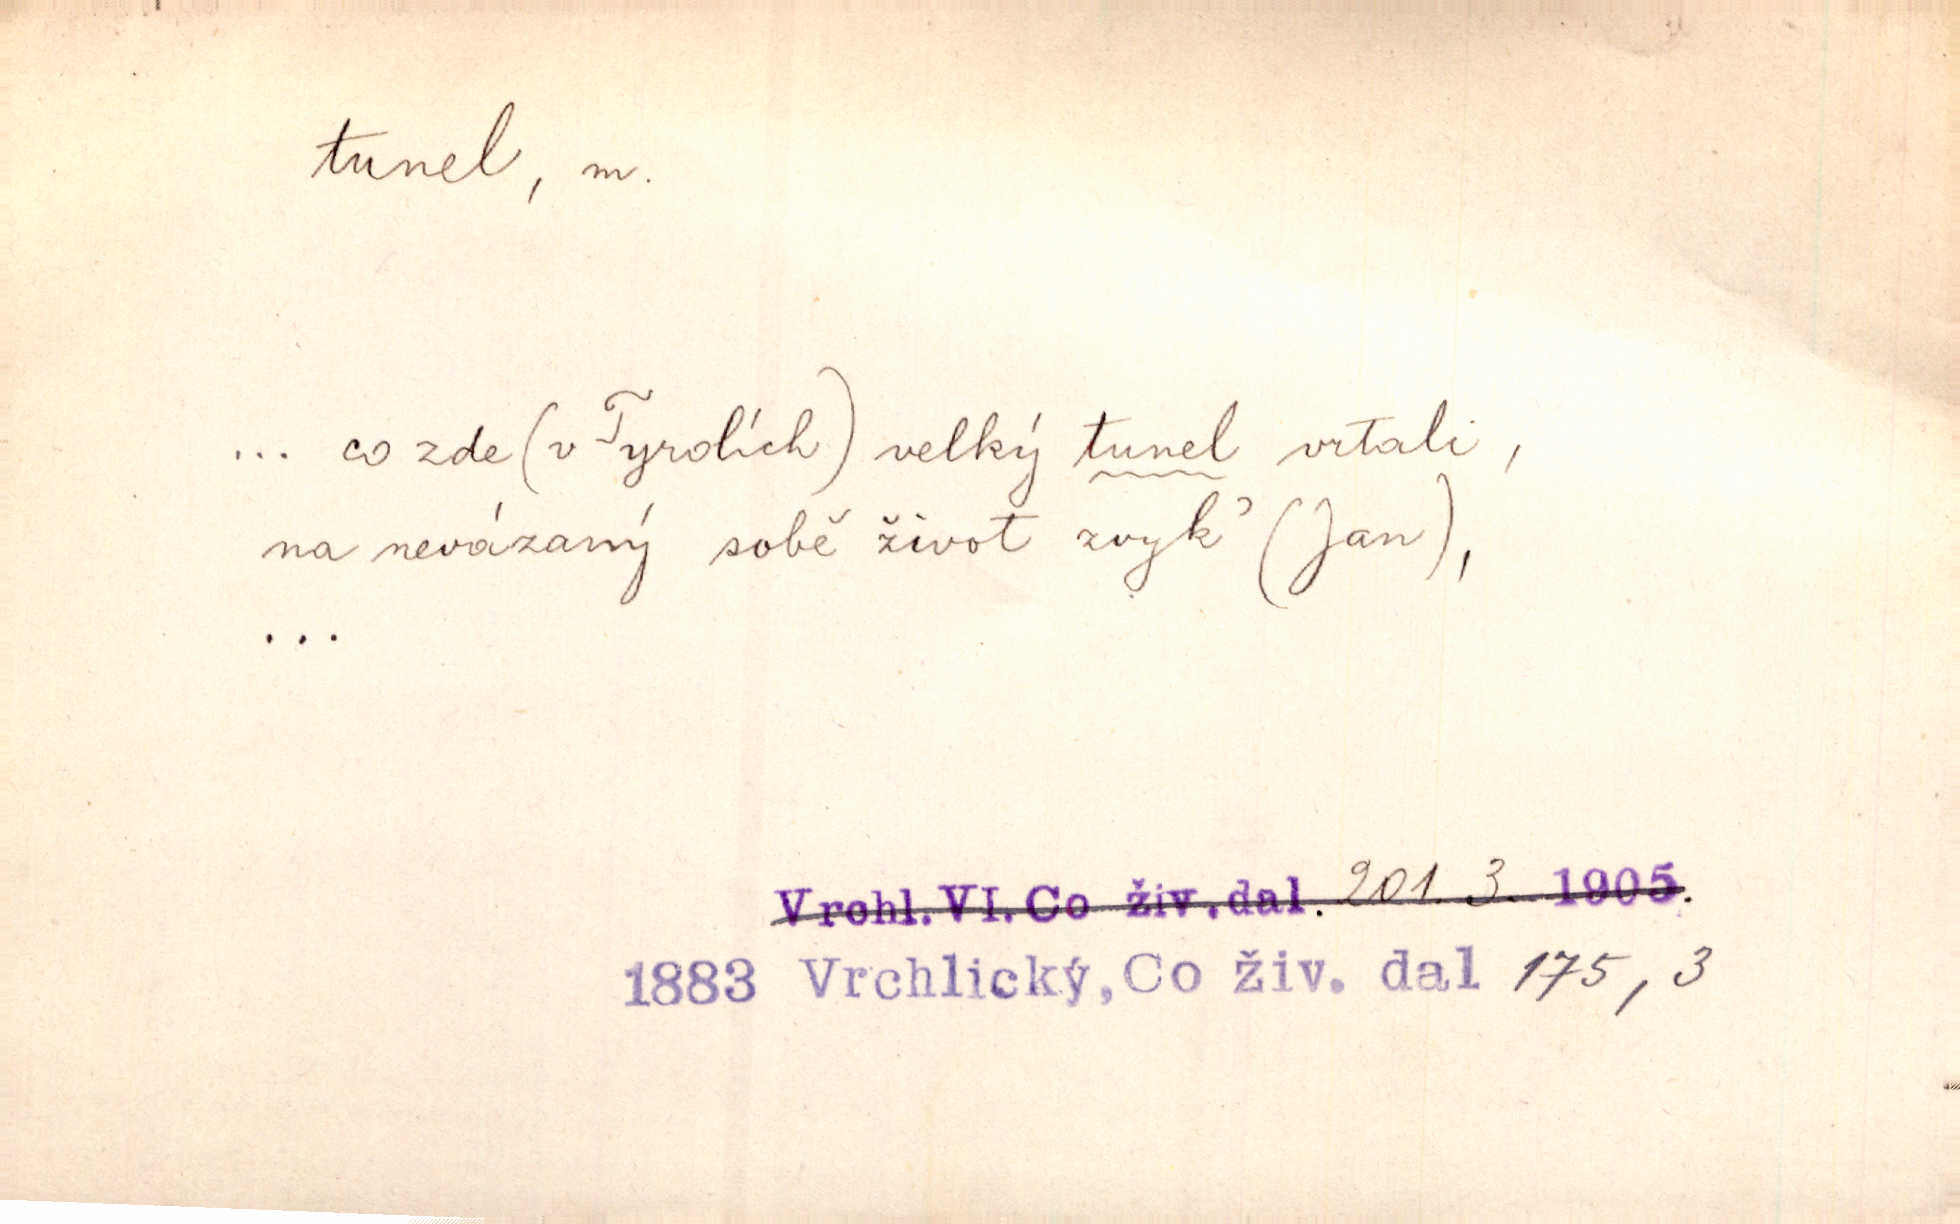 tunel, m.
... co zde (v Tyrolích) velký tunel vrtali,
na nevázaný sobě život zvyk' (Jan),
...
Vrchl. VI. Co živ. dal. 201. 3. 1905.
1883 Vrchlický, Co živ. dal 175, 3